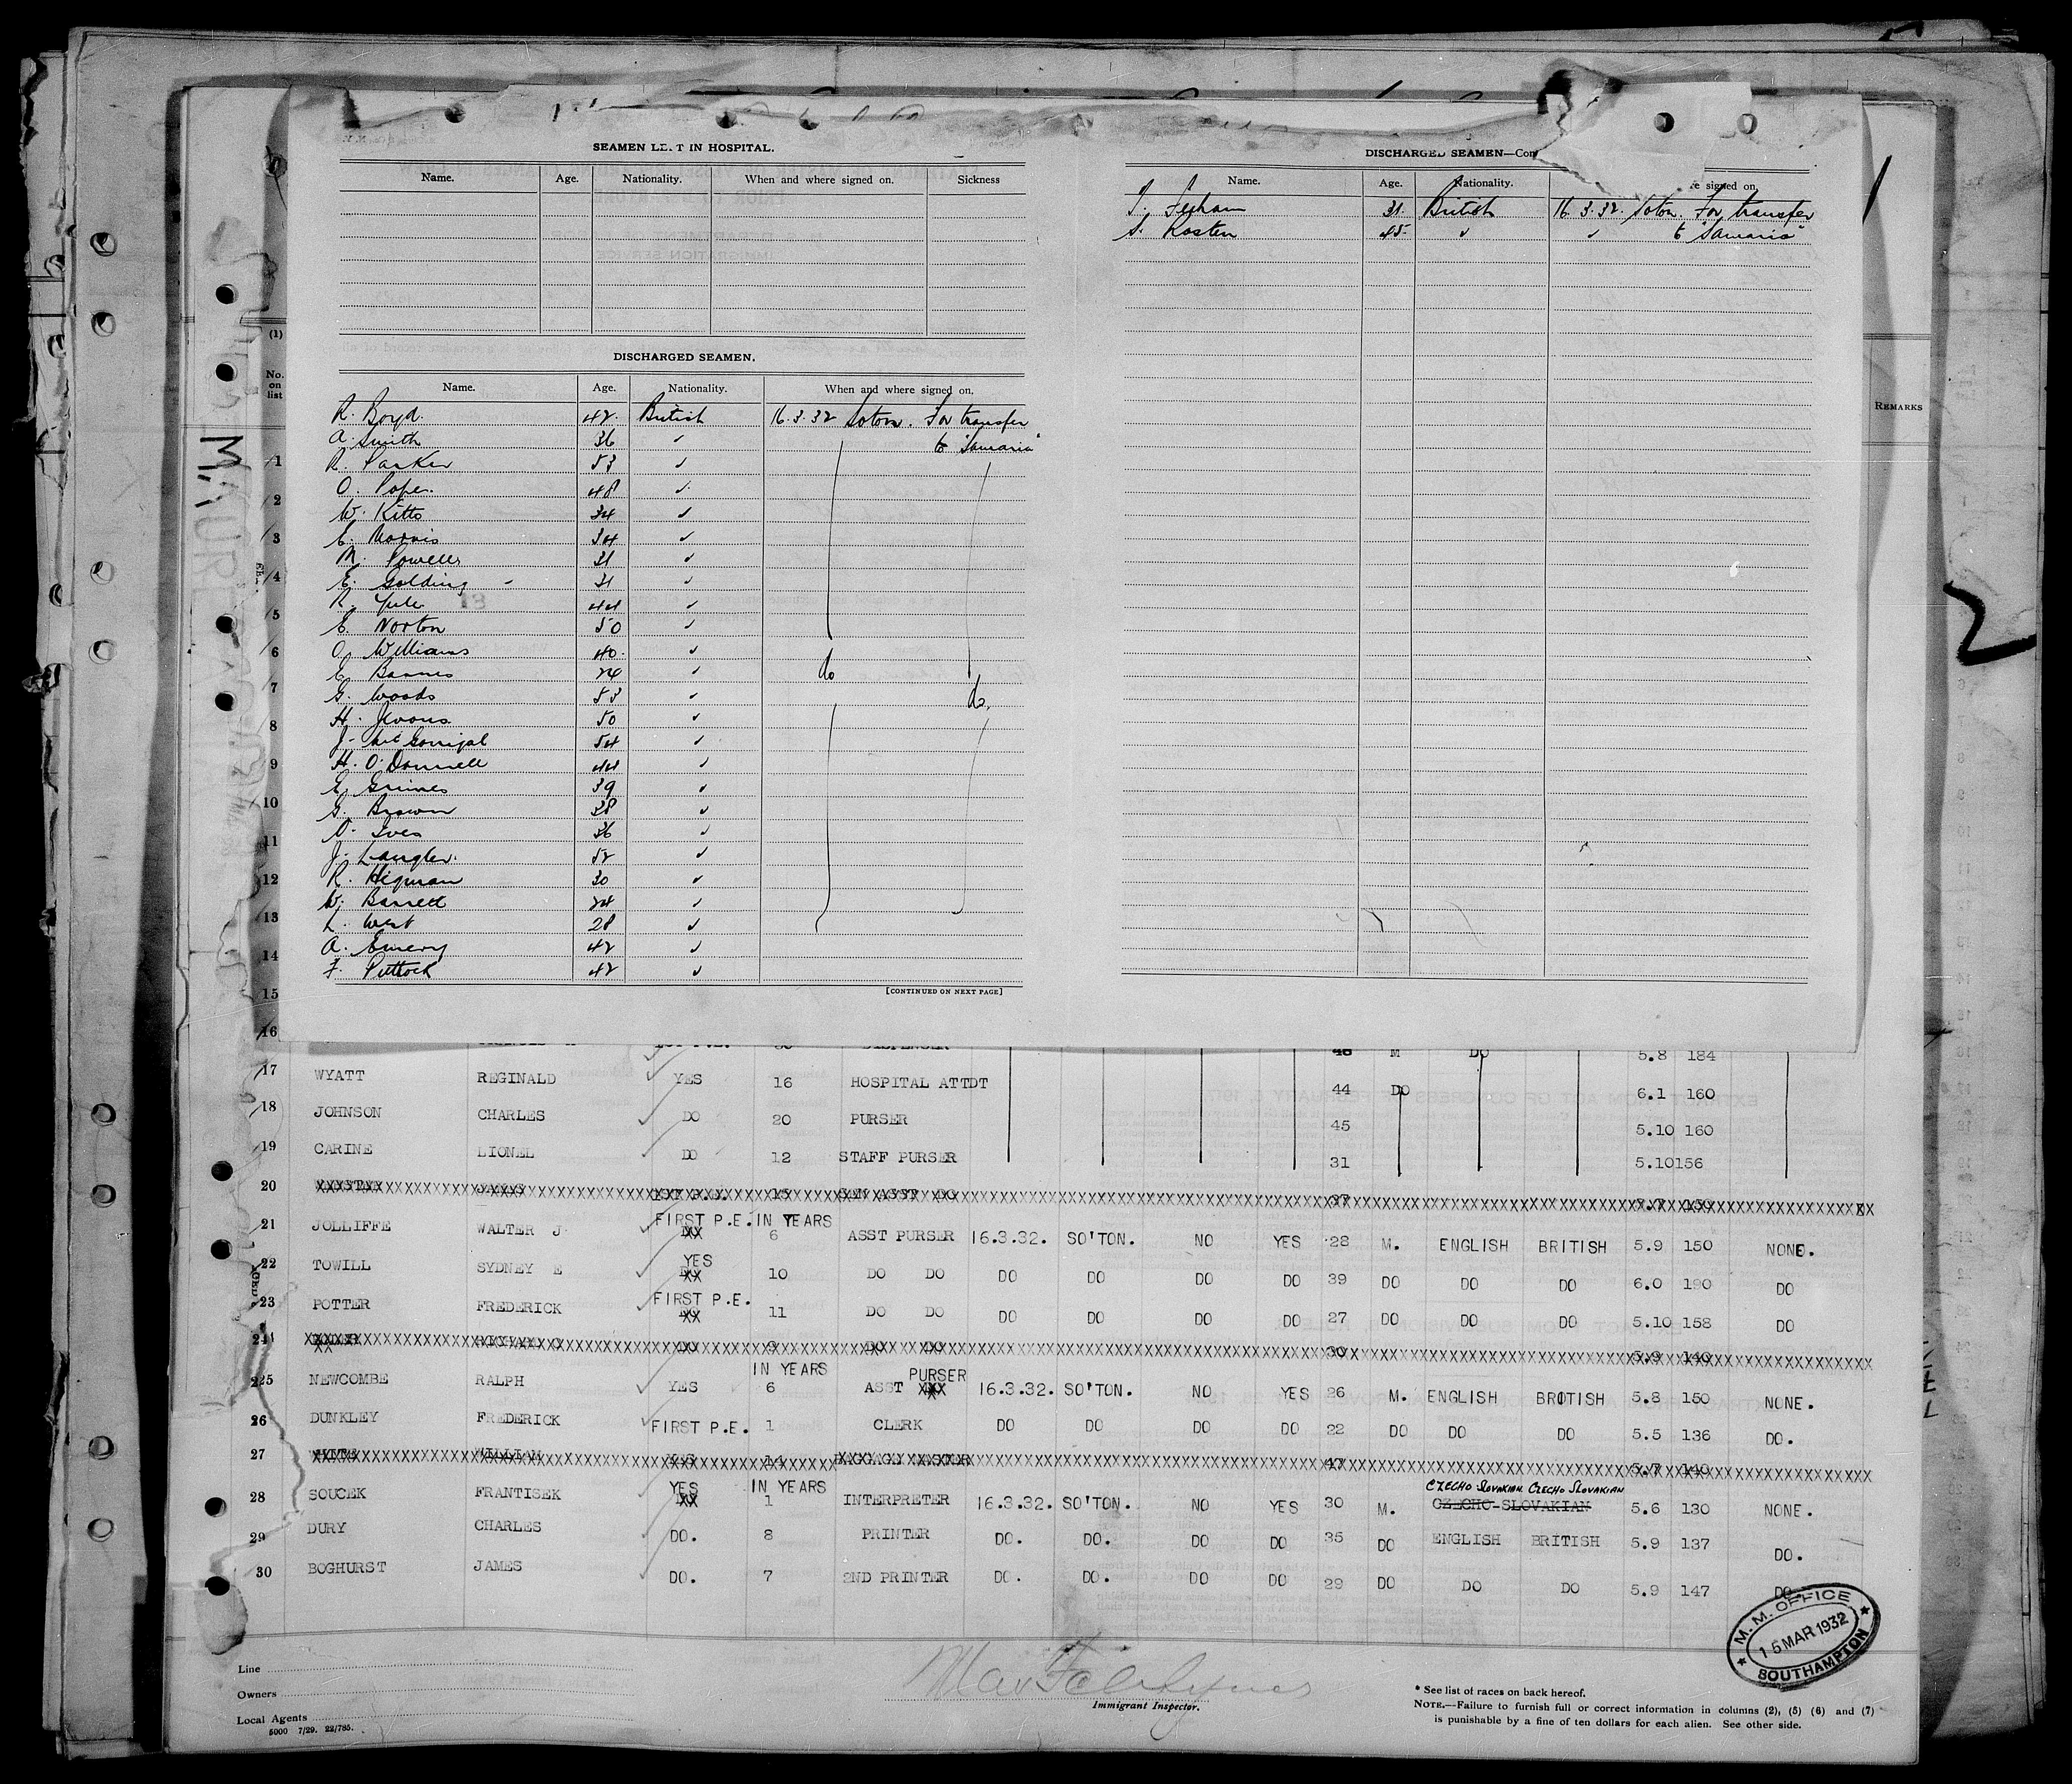 SEAMEN LEFT IN HOSPITAL.
Name. Age. Nationality. When and where signed on. Sickness
DISCHARGED SEAMEN.
Name. Age. Nationality. When and where signed on.
R. Boyd. 42. British 16.3.32 Soton. For transfer
A. Smith 36 ✓ to "Samaria"
R. Parker 53 ✓
O. Pope. 48 ✓
W. Kitto 34 ✓
E. Norris 34 ✓
M. Powell 31 ✓
E. Golding - 31 ✓
R. Yule 44 ✓
E. Norton 50 ✓
O. Williams 40. ✓
E. Barnes 24 ✓ do
G. Woods 53 ✓ do.
H. Jevons 50 ✓
J. McGonigal 54 ✓
H. O'Donnell 44 ✓
E. Grimes 39 ✓
G. Brown 38 ✓
O. Ives 36 ✓
J. Langler. 52 ✓
R. Higman 30 ✓
W. Barrett 24 ✓
L. West 28 ✓
A. Emery 42 ✓
F. Puttock 42 ✓
[CONTINUED ON NEXT PAGE]
DISCHARGED SEAMEN—Con
Name. Age. Nationality. re signed on.
31. British 16.3.32. Soton. For transfer
S. Kosten 45 ✓ ✓ to "Samaria"
(1)
No. on list
REMARKS
1
2
3
4
5
6
7
8
9
10
11
12
13
14
15
16 DISPENSER 48 M DO 5.8 184
17 WYATT REGINALD YES 16 HOSPITAL ATTDT 44 DO 6.1 160
18 JOHNSON CHARLES DO 20 PURSER 45 5.10 160
19 CARINE LIONEL DO 12 STAFF PURSER 31 5.10 156
20 JAMES 15 SEN ASST DO 37 5.7 150
FIRST P.E. IN YEARS
21 JOLLIFFE WALTER J 6 ASST PURSER 16.3.32. SO'TON. NO YES 28 M. ENGLISH BRITISH 5.9 150 NONE.
22 TOWILL SYDNEY E YES 10 DO DO DO DO DO DO 39 DO DO DO 6.0 190 DO
23 POTTER FREDERICK FIRST P.E. 11 DO DO DO DO DO DO 27 DO DO DO 5.10 158 DO
24 DO 9 DO DO 30 5.9 140
IN YEARS PURSER
25 NEWCOMBE RALPH YES 6 ASST 16.3.32. SO'TON. NO YES 26 M. ENGLISH BRITISH 5.8 150 NONE.
26 DUNKLEY FREDERICK FIRST P.E. 1 CLERK DO DO DO DO 22 DO DO DO 5.5 136 DO.
27 WILLIAM YES 14 BAGGAGE MASTER 47 5.7 140
YES IN YEARS CZECHO SLOVAKIAN CZECHO SLOVAKIAN
28 SOUCEK FRANTISEK 1 INTERPRETER 16.3.32. SO'TON. NO YES 30 M. CZECHO-SLOVAKIAN 5.6 130 NONE.
29 DURY CHARLES DO. 8 PRINTER DO. DO. DO DO 35 DO ENGLISH BRITISH 5.9 137 DO.
30 BOGHURST JAMES DO. 7 2ND PRINTER DO. DO. DO DO 29 DO DO DO 5.9 147 DO
M. M. OFFICE
16 MAR 1932
SOUTHAMPTON
Line
Owners
Local Agents
5000 7/29. 22/785.
Immigrant Inspector.
* See list of races on back hereof.
NOTE.—Failure to furnish full or correct information in columns (2), (5) (6) and (7)
is punishable by a fine of ten dollars for each alien. See other side.
2